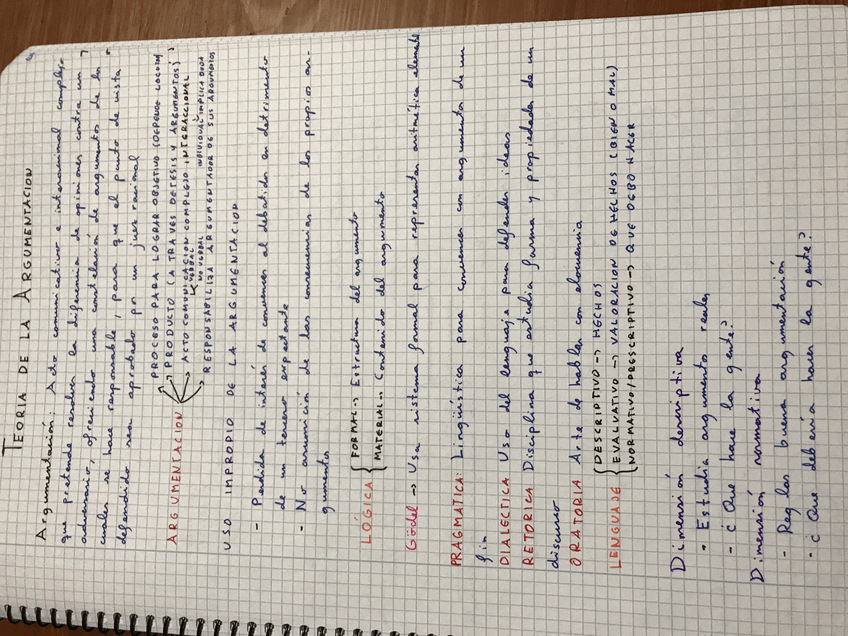 TEORIA DE LA ARGUMENTACION
Argumentación: Acto comunicativo e interaccional complejo
que pretende resolver la diferencia de opiniones contra un
adversario, ofreciendo una constelación de argumentos de los
cuales se hace responsable, para que el punto de vista
defendido sea aprobado por un juez racional
ARGUMENTACION
PROCESO PARA LOGRAR OBJETIVO (DEPENDE LOCUTOR)
PRODUCTO (A TRAVÉS DE TESIS Y ARGUMENTOS)
ACTO COMUNICACION COMPLEJO INTERACCIONAL
VERBAL
NO VERBAL
INDIVIDUAL IMPLICA DUDA
RESPONSABILIZA ARGUMENTADOR DE SUS ARGUMENTOS
USO IMPROPIO DE LA ARGUMENTACION
- Perdida de interes de convencer al debatido en detrimento
de un tercero expectante
- No asuncion de las consecuencias de los propios ar-
gumentos
LÓGICA
FORMAL -> Estructura del argumento
MATERIAL -> Contenido del argumento
Gödel -> Usa sistema formal para representar aritmética elemental
PRAGMATICA: Linguistica para convencer con argumentos de un
fin
DIALECTICA Uso del lenguaje para defender ideas
RETORICA Disciplina que estudia forma y propiedades de un
discurso
ORATORIA Arte de hablar con elocuencia
LENGUAJE
DESCRIPTIVO -> HECHOS
EVALUATIVO -> VALORACION DE HECHOS (BIEN O MAL)
NORMATIVO/PRESCRIPTIVO -> QUE DEBO HACER
Dimensión descriptiva
- Estudia argumentos reales
- ¿ Que hace la gente?
Dimensión normativa
- Reglas buena argumentación
- ¿ Que debería hacer la gente?